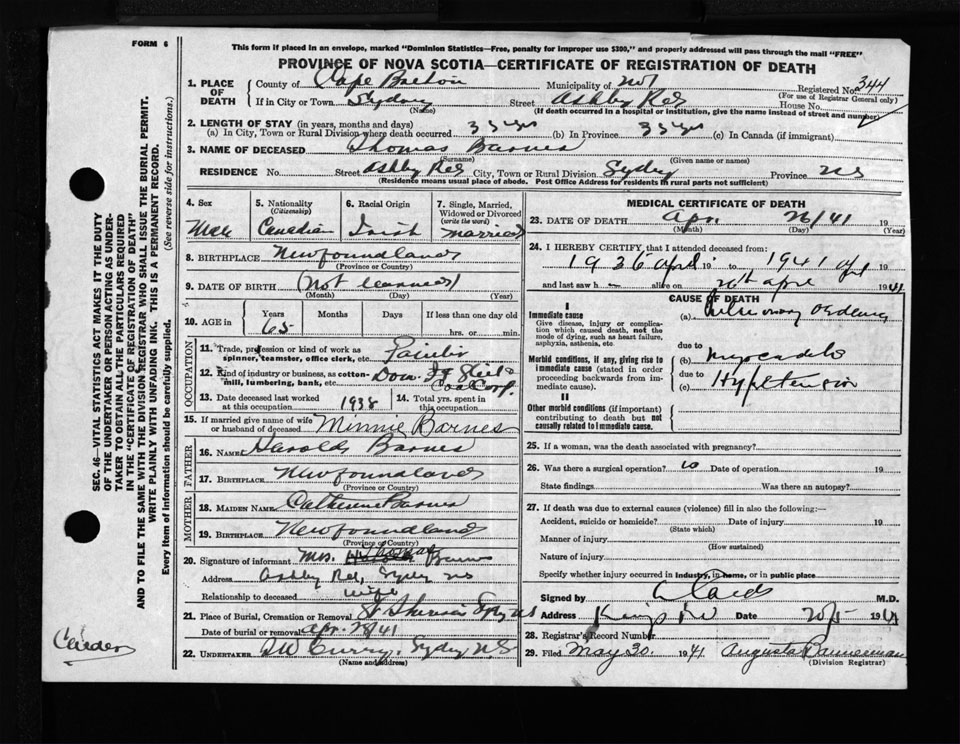 FORM 6
This form if placed in an envelope, marked "Dominion Statistics—Free, penalty for improper use $300," and properly addressed will pass through the mail "FREE"
PROVINCE OF NOVA SCOTIA—CERTIFICATE OF REGISTRATION OF DEATH
1. PLACE OF DEATH
County of Cape Breton Municipality of Registered No. 344
(For use of Registrar General only)
If in City or Town Sydney Street Ashby Rd House No.
(Name) (If death occurred in a hospital or institution, give the name instead of street and number)
2. LENGTH OF STAY (in years, months and days)
(a) In City, Town or Rural Division where death occurred 35 yrs (b) In Province 35 yrs (c) In Canada (if immigrant)
3. NAME OF DECEASED Thomas Barnes
(Surname) (Given name or names)
RESIDENCE No. Street Ashby Rd City, Town or Rural Division Sydney Province NS
(Residence means usual place of abode. Post Office Address for residents in rural parts not sufficient)
4. Sex
Male
5. Nationality
(Citizenship)
Canadian
6. Racial Origin
Irish
7. Single, Married, Widowed or Divorced
(write the word)
married
8. BIRTHPLACE Newfoundland
(Province or Country)
9. DATE OF BIRTH (not learned)
(Month) (Day) (Year)
10. AGE in Years Months Days If less than one day old
65 hrs. or min.
OCCUPATION
11. Trade, profession or kind of work as spinner, teamster, office clerk, etc.
12. Kind of industry or business, as cotton-mill, lumbering, bank, etc. Dom. Steel & Coal Corp.
13. Date deceased last worked at this occupation 1938
14. Total yrs. spent in this occupation
15. If married give name of wife or husband of deceased Minnie Barnes
FATHER
16. NAME Harold Barnes
17. BIRTHPLACE Newfoundland
(Province or Country)
MOTHER
18. MAIDEN NAME Catherine Barnes
19. BIRTHPLACE Newfoundland
(Province or Country)
20. Signature of informant Mrs. Thomas Barnes
Address Ashby Rd, Sydney NS
Relationship to deceased wife
21. Place of Burial, Cremation or Removal
Date of burial or removal Apr. 28/41
22. UNDERTAKER Curry, Sydney N.S.
(Name and address)
MEDICAL CERTIFICATE OF DEATH
23. DATE OF DEATH Apr 26/41 19
(Month) (Day) (Year)
24. I HEREBY CERTIFY, that I attended deceased from:
1936 April 19 to 1941 Apl 19
and last saw h alive on April 1941
CAUSE OF DEATH
I
Immediate cause
Give disease, injury or complication which caused death, not the mode of dying, such as heart failure, asphyxia, asthenia, etc.
(a)
due to
Morbid conditions, if any, giving rise to immediate cause (stated in order proceeding backwards from immediate cause).
(b)
due to
(c) Hypertension
II
Other morbid conditions (if important) contributing to death but not causally related to immediate cause.
25. If a woman, was the death associated with pregnancy?
26. Was there a surgical operation? Date of operation 19
State findings Was there an autopsy?
27. If death was due to external causes (violence) fill in also the following:—
Accident, suicide or homicide? Date of injury 19
(State which)
Manner of injury
(How sustained)
Nature of injury
Specify whether injury occurred in industry, in home, or in public place
Signed by M.D.
Address Kings Rd Date 1941
28. Registrar's Record Number
29. Filed May 30 1941 Augusta Bannerman
(Division Registrar)
SEC. 46—VITAL STATISTICS ACT MAKES IT THE DUTY
OF THE UNDERTAKER OR PERSON ACTING AS UNDER-
TAKER TO OBTAIN ALL THE PARTICULARS REQUIRED
IN THE "CERTIFICATE OF REGISTRATION OF DEATH"
AND TO FILE THE SAME WITH THE DIVISION REGISTRAR WHO SHALL ISSUE THE BURIAL PERMIT.
WRITE PLAINLY WITH UNFADING INK. THIS IS A PERMANENT RECORD.
Every item of information should be carefully supplied. (See reverse side for instructions.)